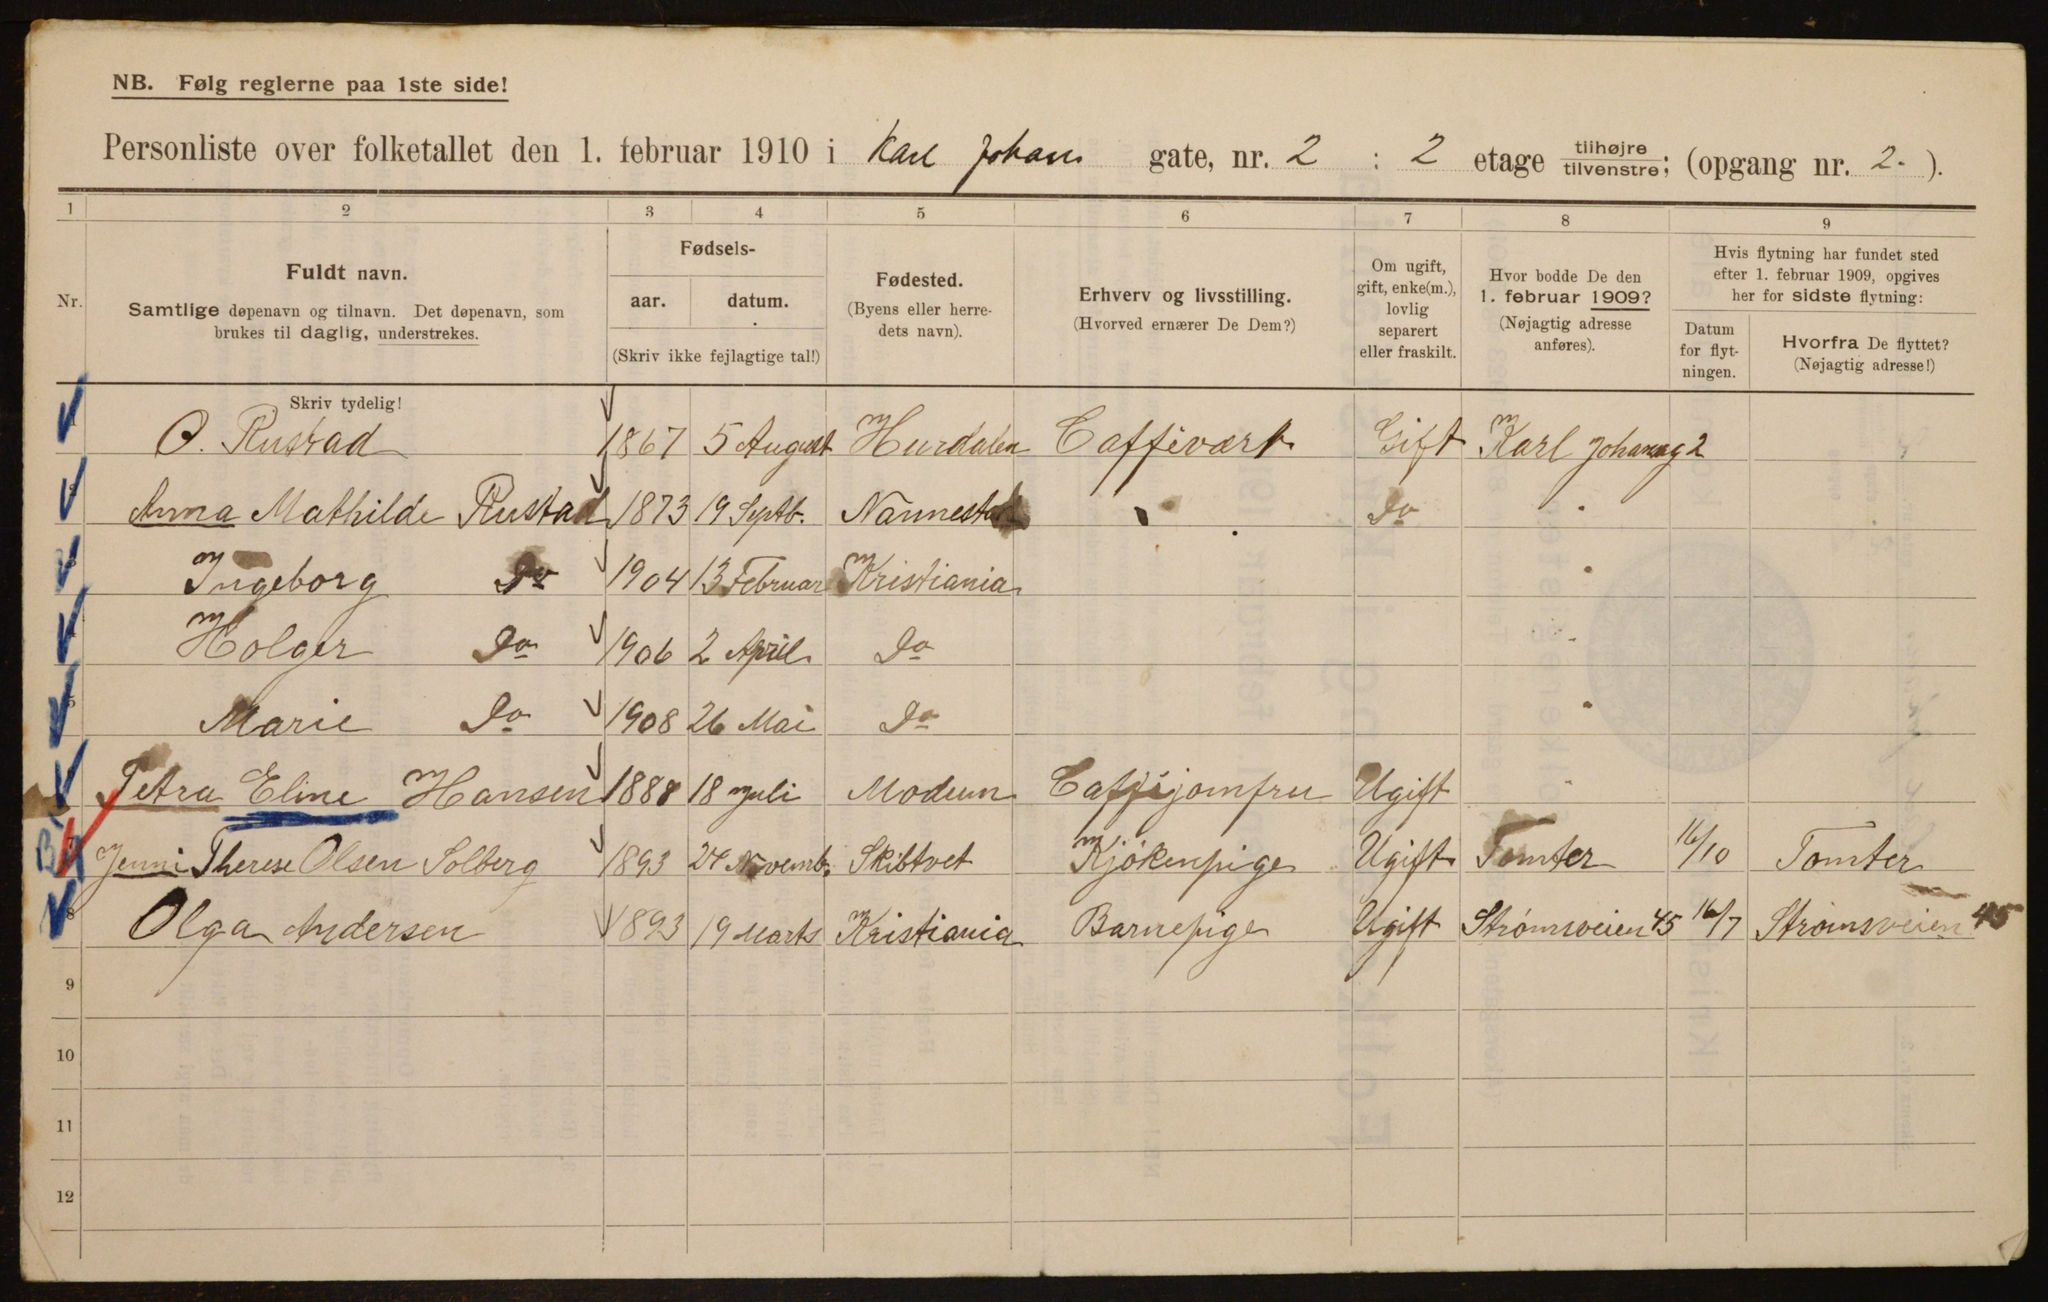 NB. Følg reglerne paa 1ste side!
Personliste over folketallet den 1. februar 1910 i Karl Johans gate, nr. 2 : 2 etage tilhøjre/tilvenstre; (opgang nr. 2. ).
1 2 3 4 5 6 7 8 9
Nr.
Fuldt navn.
Samtlige døpenavn og tilnavn. Det døpenavn, som
brukes til daglig, understrekes.
Skriv tydelig!
Fødsels-
aar. datum.
(Skriv ikke fejlagtige tal!)
Fødested.
(Byens eller herre-
dets navn).
Erhverv og livsstilling.
(Hvorved ernærer De Dem?)
Om ugift,
gift, enke(m.),
lovlig
separert
eller fraskilt.
Hvor bodde De den
1. februar 1909?
(Nøjagtig adresse
anføres).
Hvis flytning har fundet sted
efter 1. februar 1909, opgives
her for sidste flytning:
Datum
for flyt-
ningen.
Hvorfra De flyttet?
(Nøjagtig adresse!)
O. Rustad 1867 5 August Hurdalen Caffévært Gift Karl Johansg 2
Anna Mathilde Rustad 1873 19 Septb. Nannestad Do
Ingeborg Do 1904 13 Februar Kristiania
Holger Do 1906 2 April Do
5 Marie Do 1908 26 Mai Do
Petra Eline Hansen 1888 18 Juli Modum Caffijomfru Ugift
Jenni Therese Olsen Solberg 1893 24 Novemb. Skibtvet Kjökenpige Ugift Tomter 16/10 Tomter
8 Olga Andersen 1893 19 Marts Kristiania Barnepige Ugift Strømsveien 45 16/7 Strømsveien 45
9
10
11
12